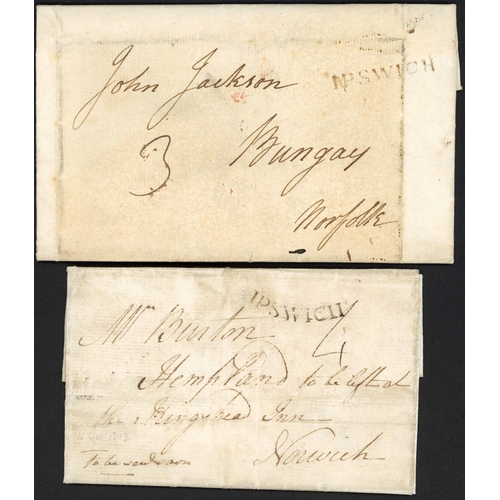 IPSWICH
John Jackson
3
Bungay
Norfolk
IPSWICH
Mr Burton
4
Hempland to be left at
the Kings head Inn
Norwich
To be sent soon